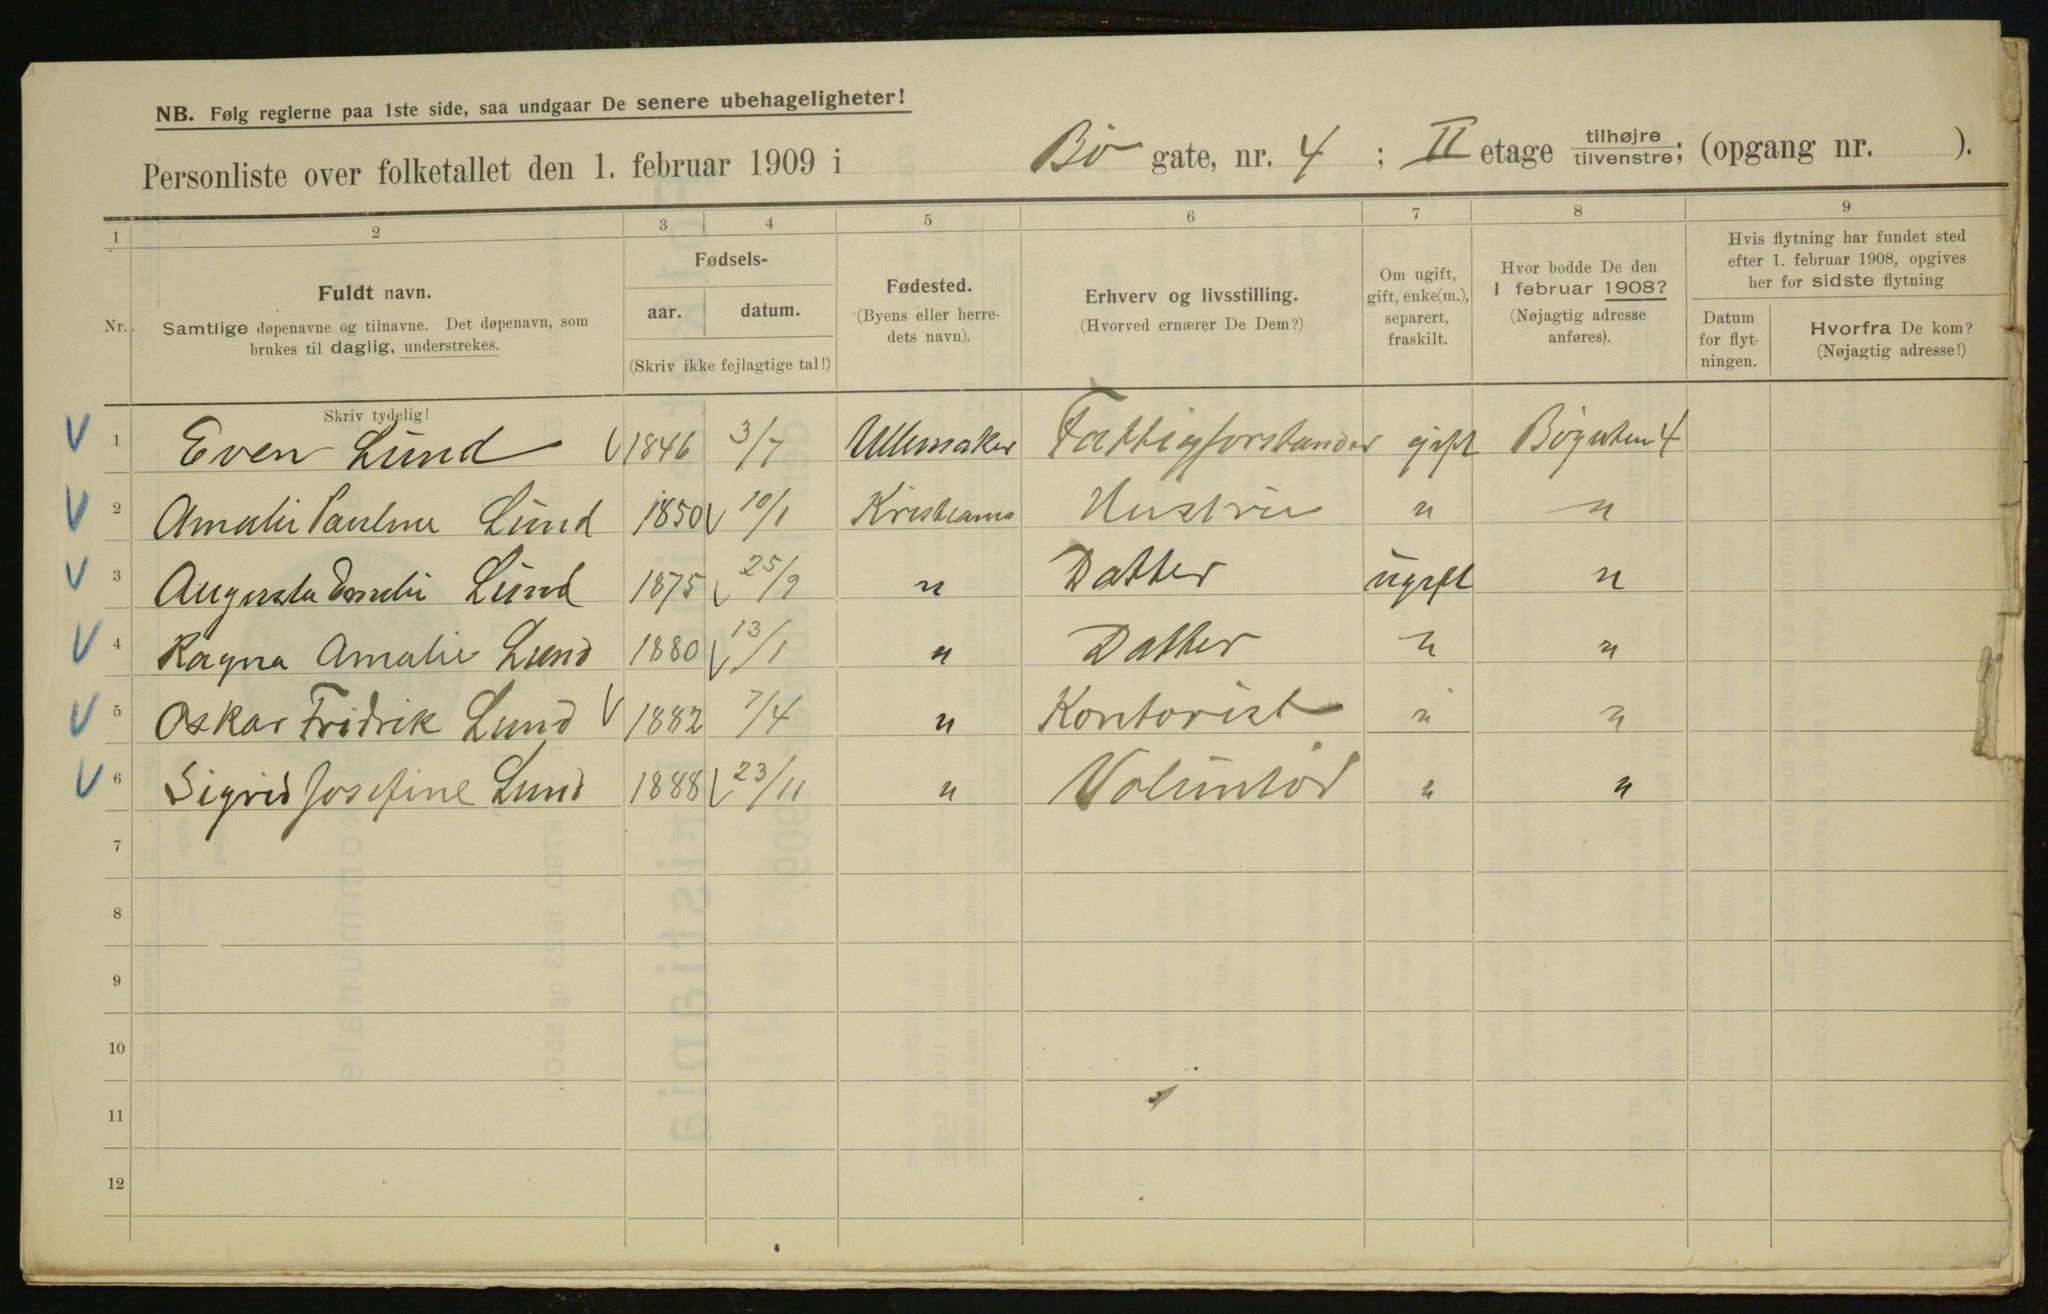 NB. Følg reglerne paa 1ste side, saa undgaar De senere ubehageligheter!
Personliste over folketallet den 1. februar 1909 i Bö gate, nr. 4 ; II etage tilhøjre/tilvenstre; (opgang nr. ).
1 2 3 4 5 6 7 8 9
Nr. Fuldt navn. Samtlige døpenavne og tilnavne. Det døpenavn, som brukes til daglig, understrekes.
Fødsels- aar. datum. (Skriv ikke fejlagtige tal!)
Fødested. (Byens eller herredets navn).
Erhverv og livsstilling. (Hvorved ernærer De Dem?)
Om ugift, gift, enke(m.), separert, fraskilt.
Hvor bodde De den 1 februar 1908? (Nøjagtig adresse anføres).
Hvis flytning har fundet sted efter 1. februar 1908, opgives her for sidste flytning
Datum for flytningen. Hvorfra De kom? (Nøjagtig adresse!)
Skriv tydelig!
1 Even Lund 1846 3/7 Ullensaker Fattigforstander gift Bøgaten 4
2 Amalie Pauline Lund 1850 10/1 Kristiania Hustru " "
3 Augusta Emilie Lund 1875 25/9 " Datter ugift "
4 Ragna Amalie Lund 1880 13/1 " Datter " "
5 Oskar Fridrik Lund 1882 7/4 " Kontorist " "
6 Sigrid Josefine Lund 1888 23/11 " Voluntør " "
7
8
9
10
11
12